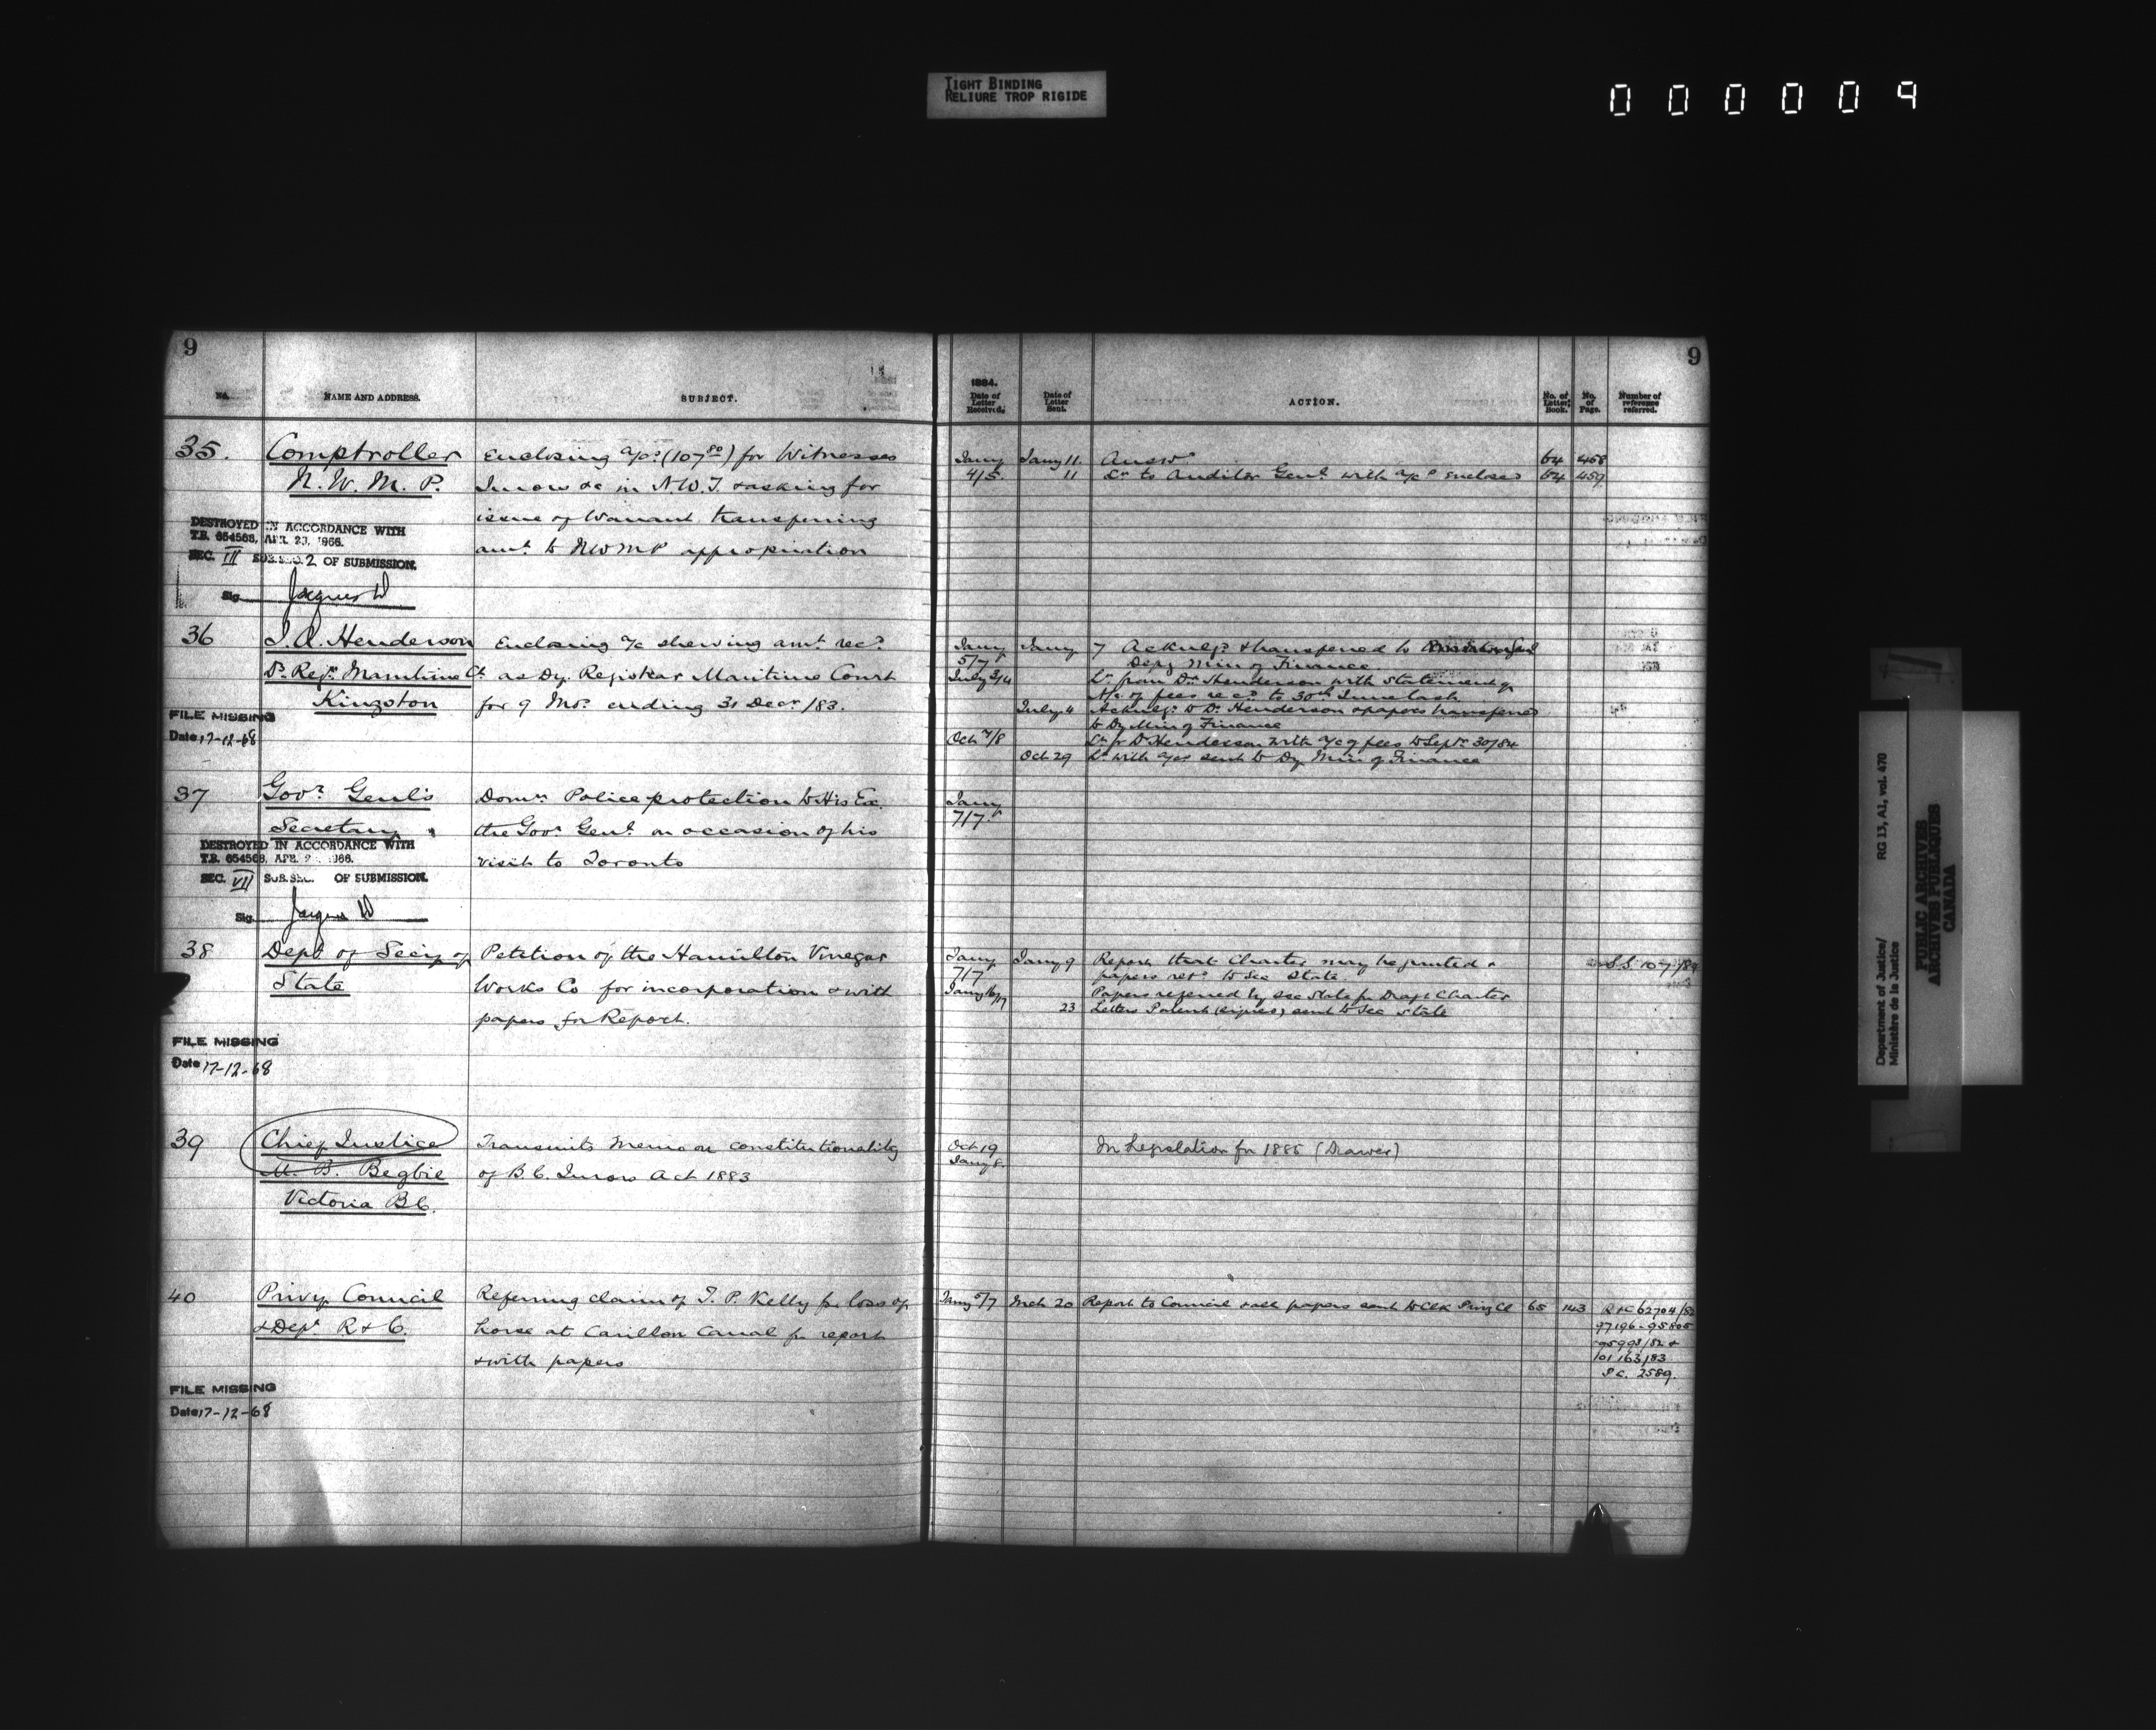 TIGHT BINDING
RELIURE TROP RIGIDE
000009
9
No. NAME AND ADDRESS. SUBJECT.
35. Comptroller Enclosing a/cs (107 80) for Witnesses
N. W. M. P. Jurors &c in N.W.T. & asking for
issue of Warrant transferring
amt to NWMP appropriation
DESTROYED IN ACCORDANCE WITH
T.B. 654568, APR. 23, 1966.
SEC. III SUB.SEC. 2 OF SUBMISSION.
Sig. Jacques D
36 J. A. Henderson Enclosing a/c shewing amt recd
Dy Regr Maritime Ct as Dy. Registrar Maritime Court
Kingston for 9 Mos. ending 31 Decr /83.
FILE MISSING
Date 17-12-68
37 Govr Genl's Domn Police protection to His Ex.
Secretary the Govr Genl on occasion of his
visit to Toronto
DESTROYED IN ACCORDANCE WITH
T.B. 654568, APR. 1966.
SEC. VII SUB.SEC. OF SUBMISSION.
Sig. Jacques D
38 Dept of Secy of Petition of the Hamilton Vinegar
State Works Co for incorporation & with
papers for Report.
FILE MISSING
Date 17-12-68
39 Chief Justice Transmits Memo on constitutionality
M. B. Begbie of B.C. Jurors Act 1883
Victoria B.C.
40 Privy Council Referring claim of T. P. Kelly for loss of
& Dept R & C. horse at Carillon Canal for report
& with papers
FILE MISSING
Date 17-12-68
9
1884.
Date of Letter Received. Date of Letter Sent. ACTION. No. of Letter Book. No. of Page. Number of reference referred.
Jany Jany 11. Answd 64 458
4/5. 11 Lr to Auditor Genl with a/cs enclosed 64 459
Jany Jany 7 Acknlgd & transferred to
5/7 Depy Min of Finance
July 3/4 Lr from Dr Henderson with statement of
A/c of fees recd to 30th June last
July 4 Acknlgd to Dr Henderson & papers transferred
to Dy Min of Finance
Oct 7/8 Lr fr Dr Henderson with a/c of fees to Septr 30/84
Oct 29 Lr with a/cs sent to Dy Min of Finance
Jany
7/7
Jany Jany 9 Report that Charter may be granted & S.S. 10-7/84
7/7 papers retd to Sec State
Jany 16/17 Papers referred by Sec State for Draft Charter
23 Letters Patent (signed) sent to Sec State
Oct 19 In Legislation for 1885 (Drawer)
Jany 8.
Jany 5/7 Mch 20 Report to Council & all papers sent to Clk Privy Cl 65 143 R & C 62704/80
97196-95805
/82 &
101163/83
P.C. 2589.
Department of Justice/
Ministère de la Justice
RG 13, A1, vol. 470
PUBLIC ARCHIVES
ARCHIVES PUBLIQUES
CANADA